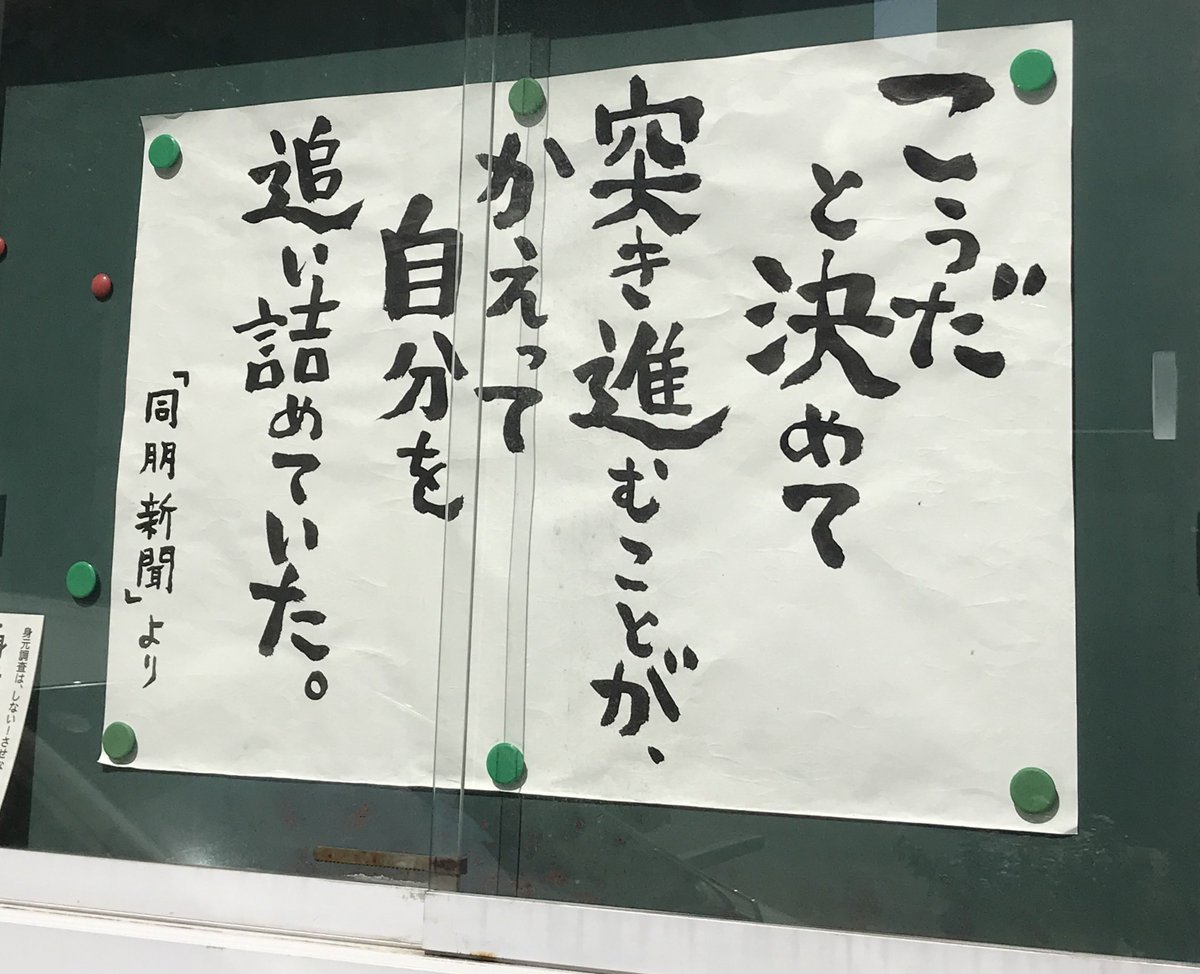 こうだ
と決めて
突き進むことが、
かえって
自分を
追い詰めていた。
「同朋新聞」より
身元調査は、しない!させな